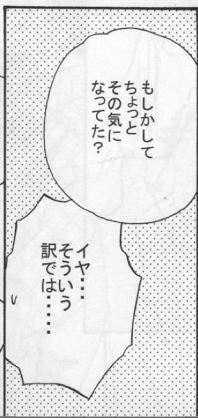 もしかして
ちょっと
その気に
なってた？
イヤ・・・
そういう
訳では・・・・・